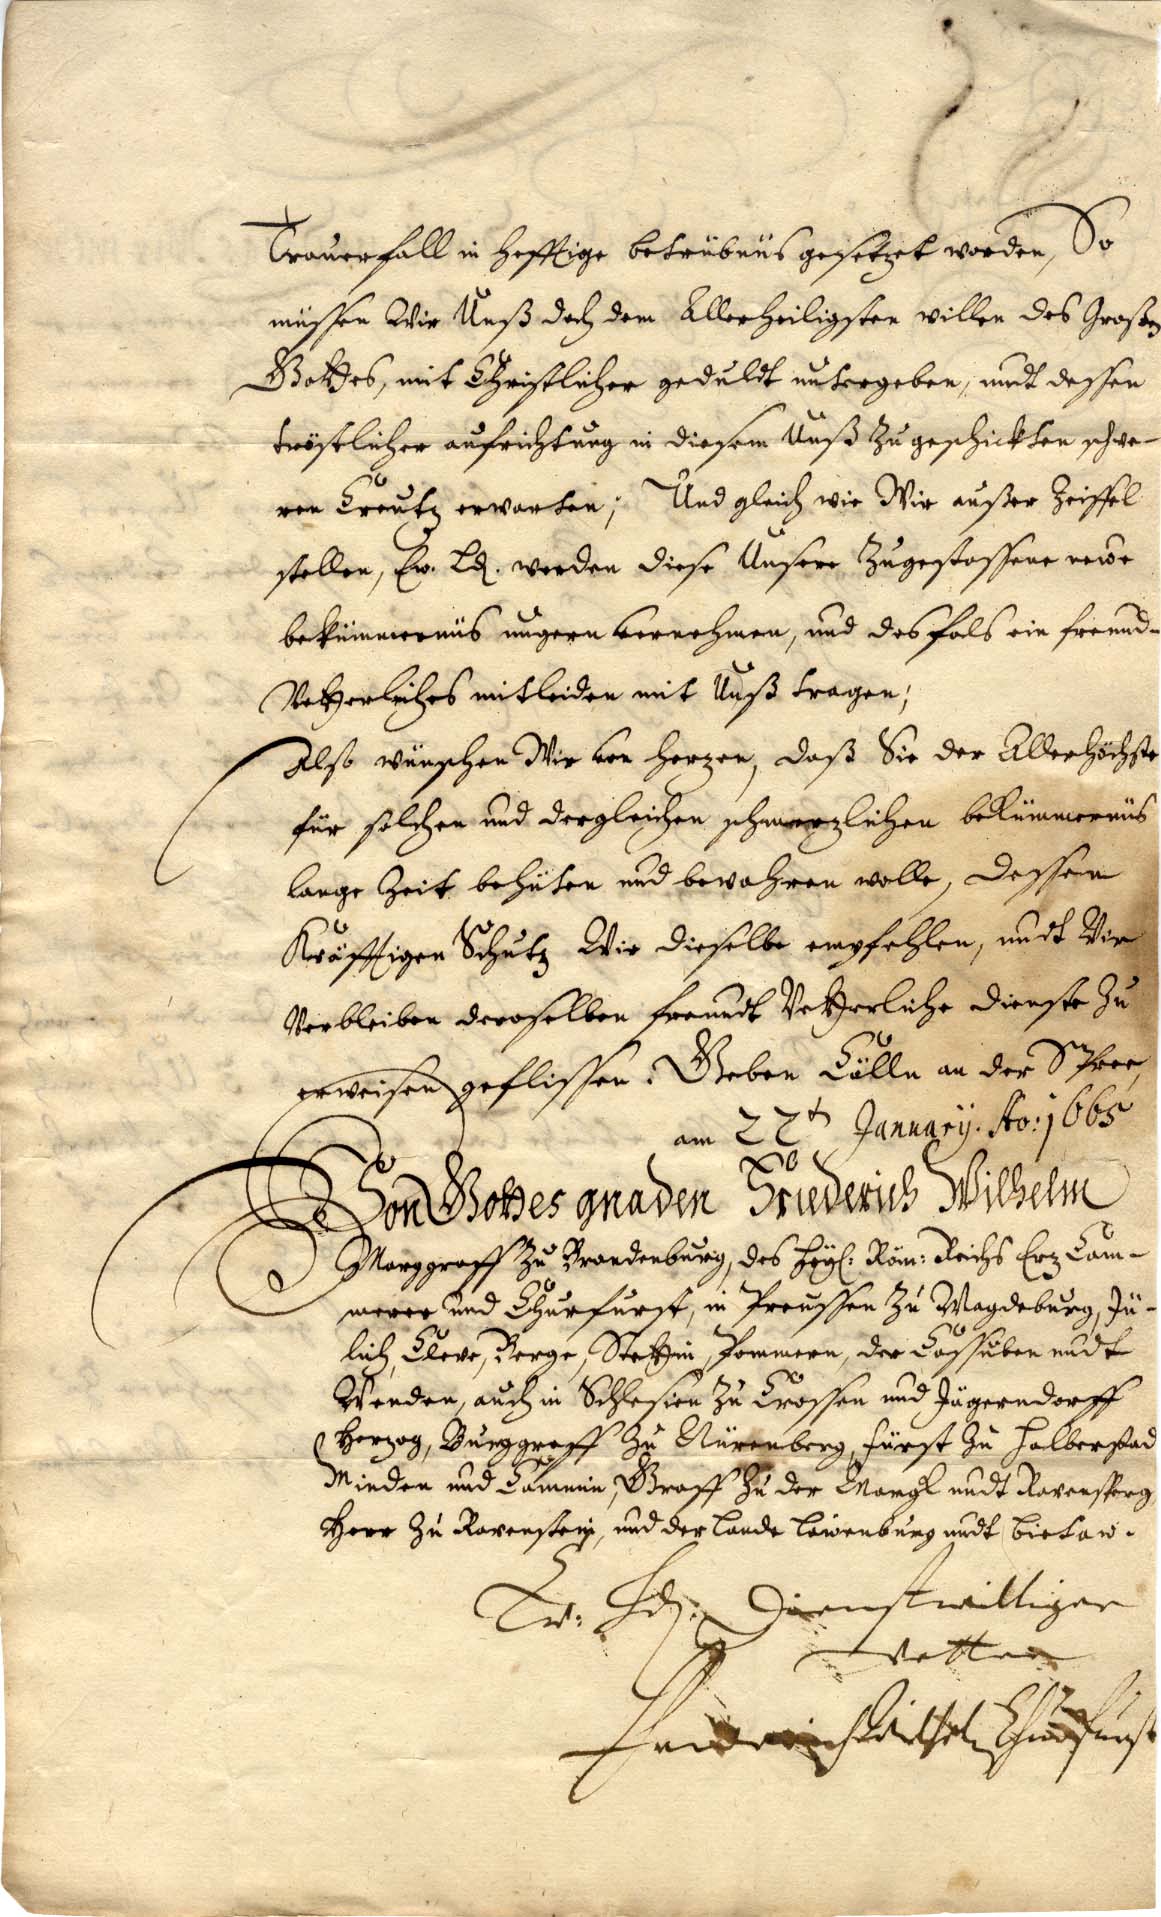 Trauerfall in hefftige betrübnüs gesetzet worden, So
müssen Wir Unß doch dem Allerheiligsten willen des Großen
Gottes, mit Christlicher geduldt untergeben, undt dessen
tröstlicher aufrichtung in diesem Unß zugeschickten schwe-
ren Creutz erwarten; Und gleich wie Wir außer Zeiffel
stellen, Ew. Ld. werden diese Unsere zugestossene newe
bekümmernüs ungern vernehmen, und desfals ein freund-
Vetterliches mitleiden mit Unß tragen;
Also wünschen Wir von hertzen, daß Sie der Allerhöchste
für solchen und dergleichen schmertzlichen bekümmernüs
lange Zeit behüten und bewahren wolle, dessen
Kräfftigen Schutz Wir dieselbe empfehlen, undt Wir
Verbleiben deroselben freundt Vetterliche dienste zu
erweisen geflissen. Geben Cölln an der Spree,
am 22t January. Ao: 1665
Von Gottes gnaden Friederich Wilhelm
Marggraff zu Brandenburg, des Heyl: Röm: Reichs Ertz Cäm-
merer und Churfürst, in Preussen zu Magdeburg, Jü-
lich, Cleve, Berge, Stettin, Pommern, der Cassuben undt
Wenden, auch in Schlesien zu Crossen und Jägerndorff
Hertzog, Burggraff zu Nürenberg, Fürst zu Halberstad
Minden und Cammin, Graff zu der Marck undt Ravensperg
Herr zu Ravenstein, und der Lande Lawenburg undt Bütaw.
Ew: Ld: Dienstwilliger
Vetter
Friderich Wilhelm Churfürst